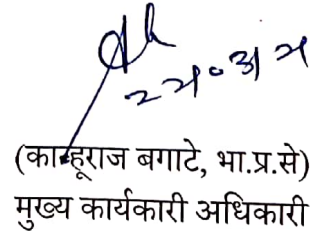 (कान्हूराज बगाटे, भा.प्र.से)
मुख्य कार्यकारी अधिकारी